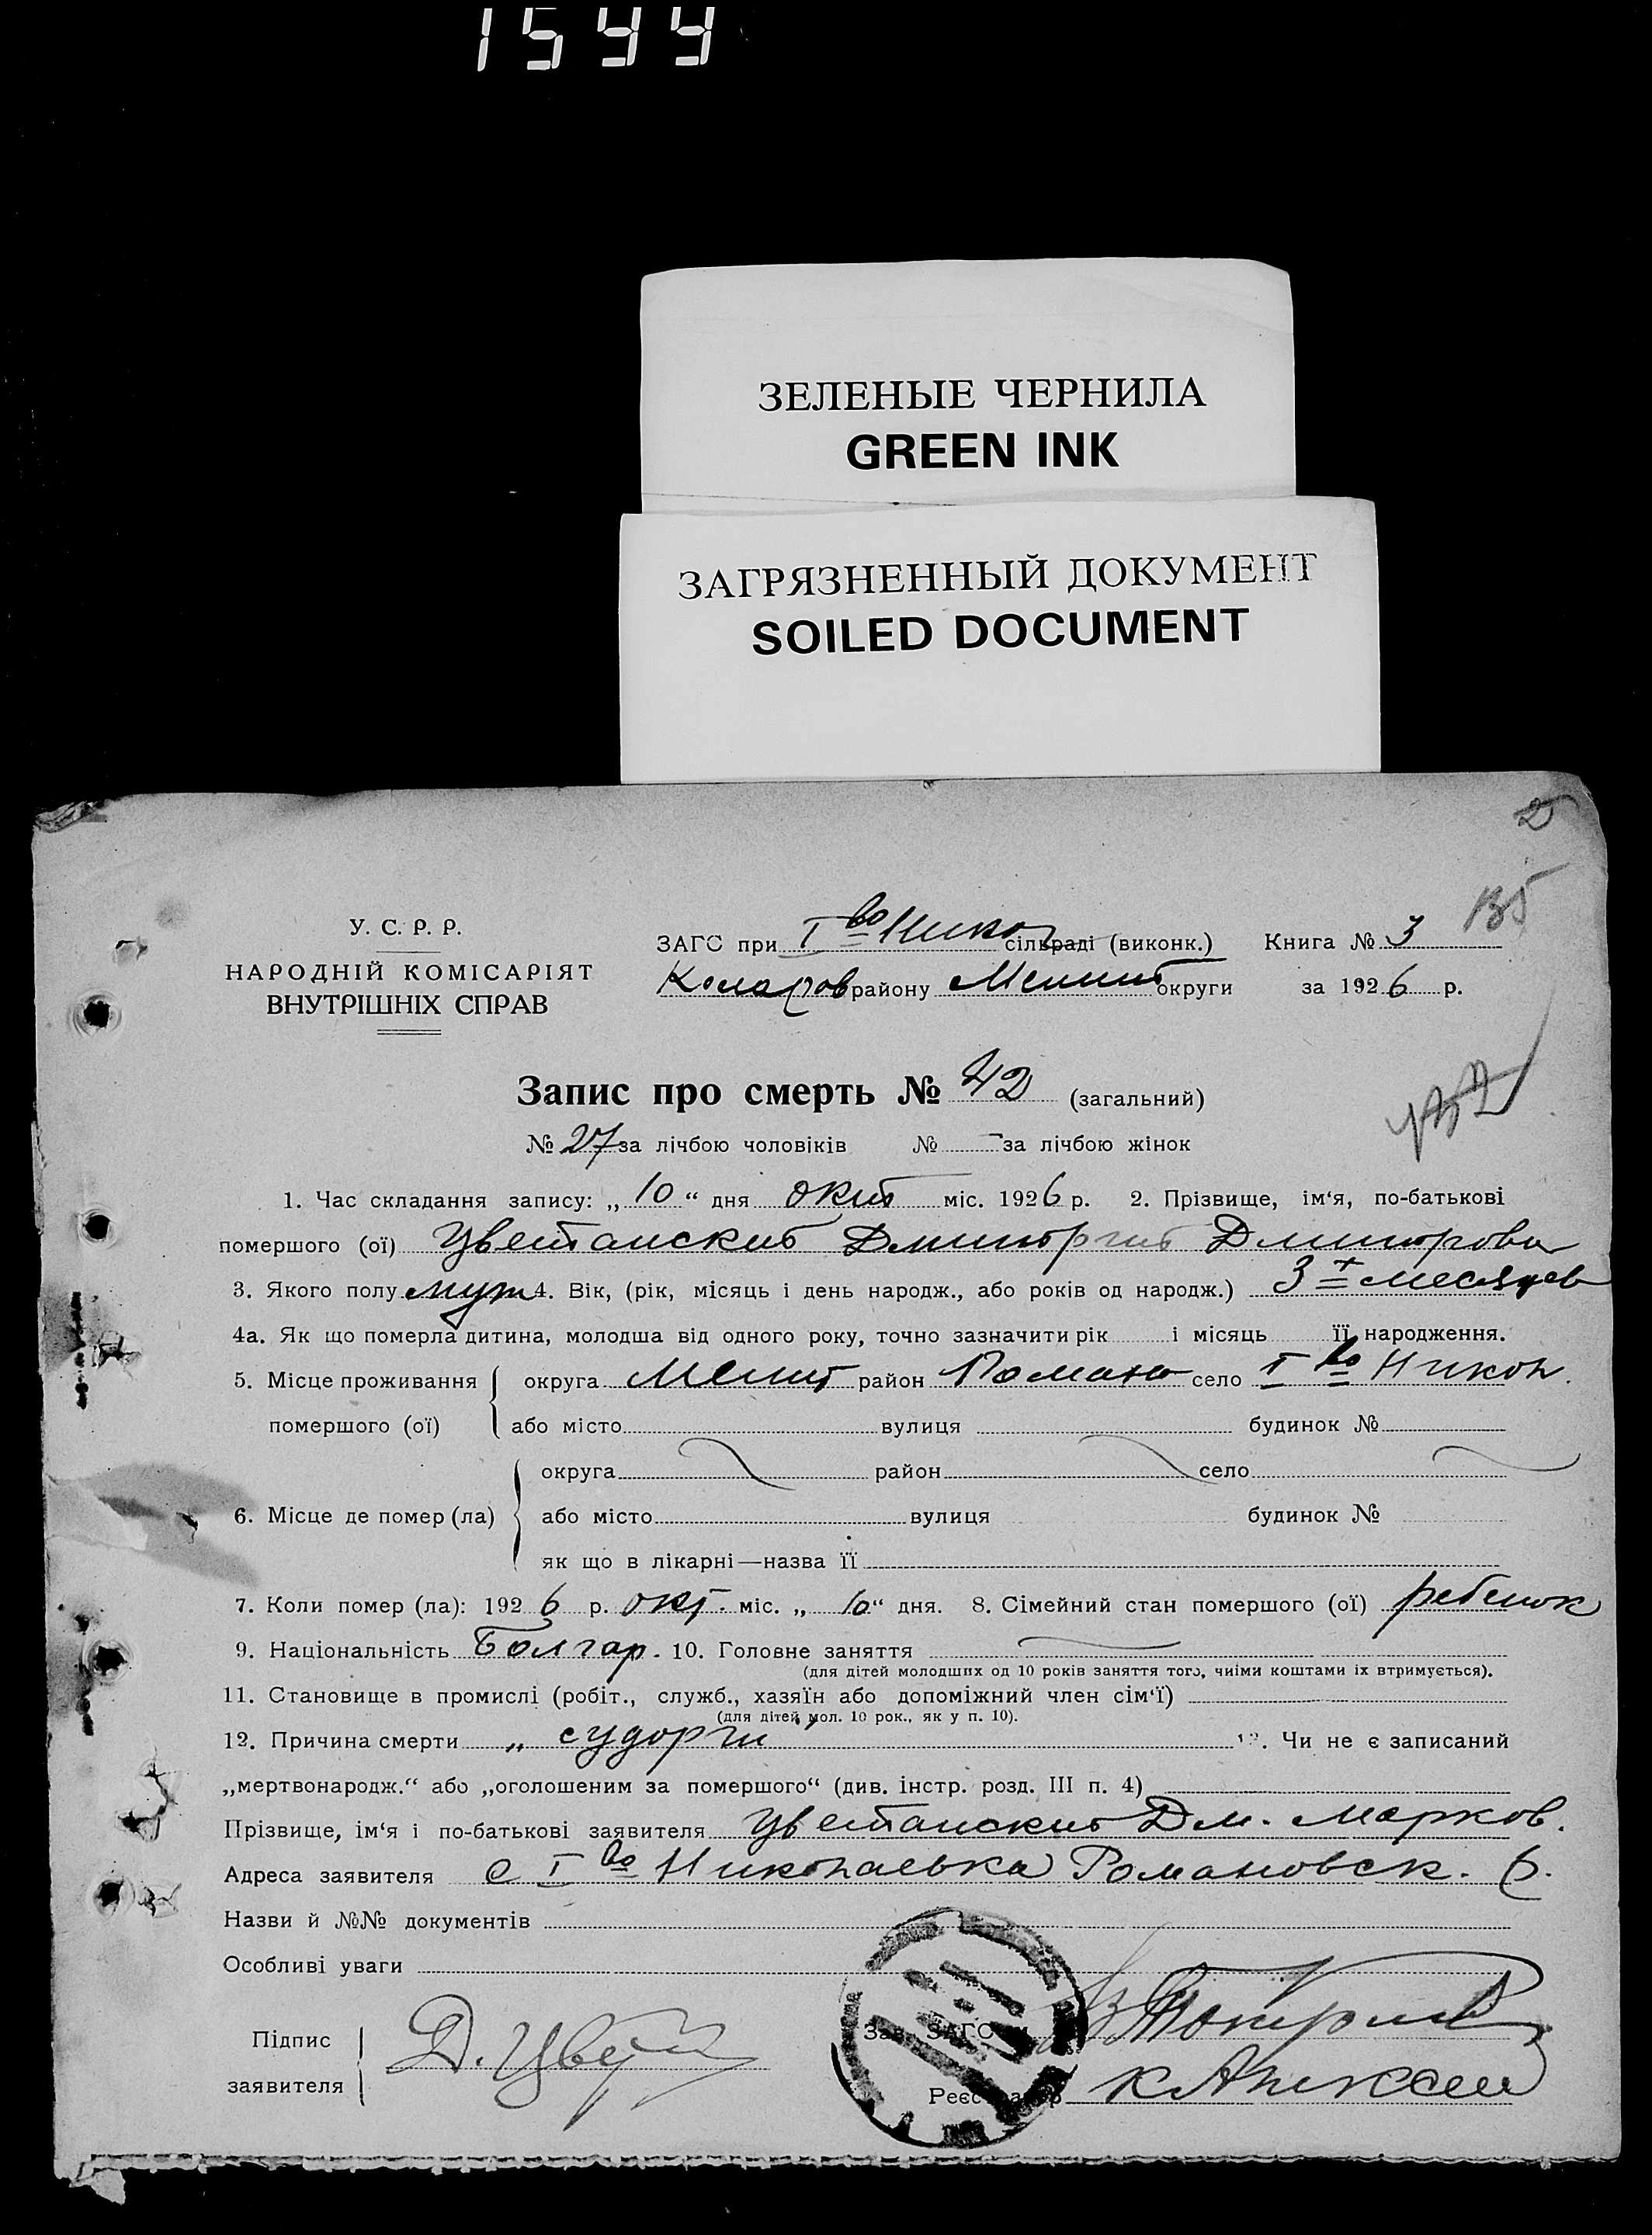 1544
ЗЕЛЕНЫЕ ЧЕРНИЛА
GREEN INK
ЗАГРЯЗНЕННЫЙ ДОКУМЕНТ
SOILED DOCUMENT
2
135
У. С. Р. Р.
НАРОДНІЙ КОМІСАРІЯТ
ВНУТРІШНІХ СПРАВ
ЗАГС при I во Никол сільраді (виконк.) Книга № 3
Коларов району Мелит округи за 1926 р.
Запис про смерть № 42 (загальний)
№ 27 за лічбою чоловіків № — за лічбою жінок
1. Час складання запису: „10“ дня окт міс. 1926 р. 2. Прізвище, ім‘я, по-батькові
помершого (ої) Цветанский Дмитрий Дмитрови
3. Якого полу муж 4. Вік, (рік, місяць і день народж., або років од народж.) 3 х месяцев
4а. Як що померла дитина, молодша від одного року, точно зазначити рік і місяць її народження.
5. Місце проживання округа Мелит район Роман село I во Никол.
помершого (ої) або місто вулиця будинок №
округа район село
6. Місце де помер (ла) або місто вулиця будинок №
як що в лікарні—назва її
7. Коли помер (ла): 1926 р. окт. міс. „10“ дня. 8. Сімейний стан помершого (ої) ребенок
9. Національність Болгар. 10. Головне заняття
(для дітей молодших од 10 років заняття того, чиїми коштами їх втримується).
11. Становище в промислі (робіт., служб., хазяїн або допоміжний член сім‘ї)
(для дітей мол. 10 рок., як у п. 10).
12. Причина смерти „судорги“ 13. Чи не є записаний
„мертвонародж.“ або „оголошеним за помершого“ (див. інстр. розд. III п. 4)
Прізвище, ім‘я і по-батькові заявителя Цветанский Дм. Марков.
Адреса заявителя с I во Николаевка Романовск. р.
Назви й №№ документів
Особливі уваги
Підпис Д. Цвет Зав. ЗАГС‘ом
заявителя Реєстратор К Алексеев